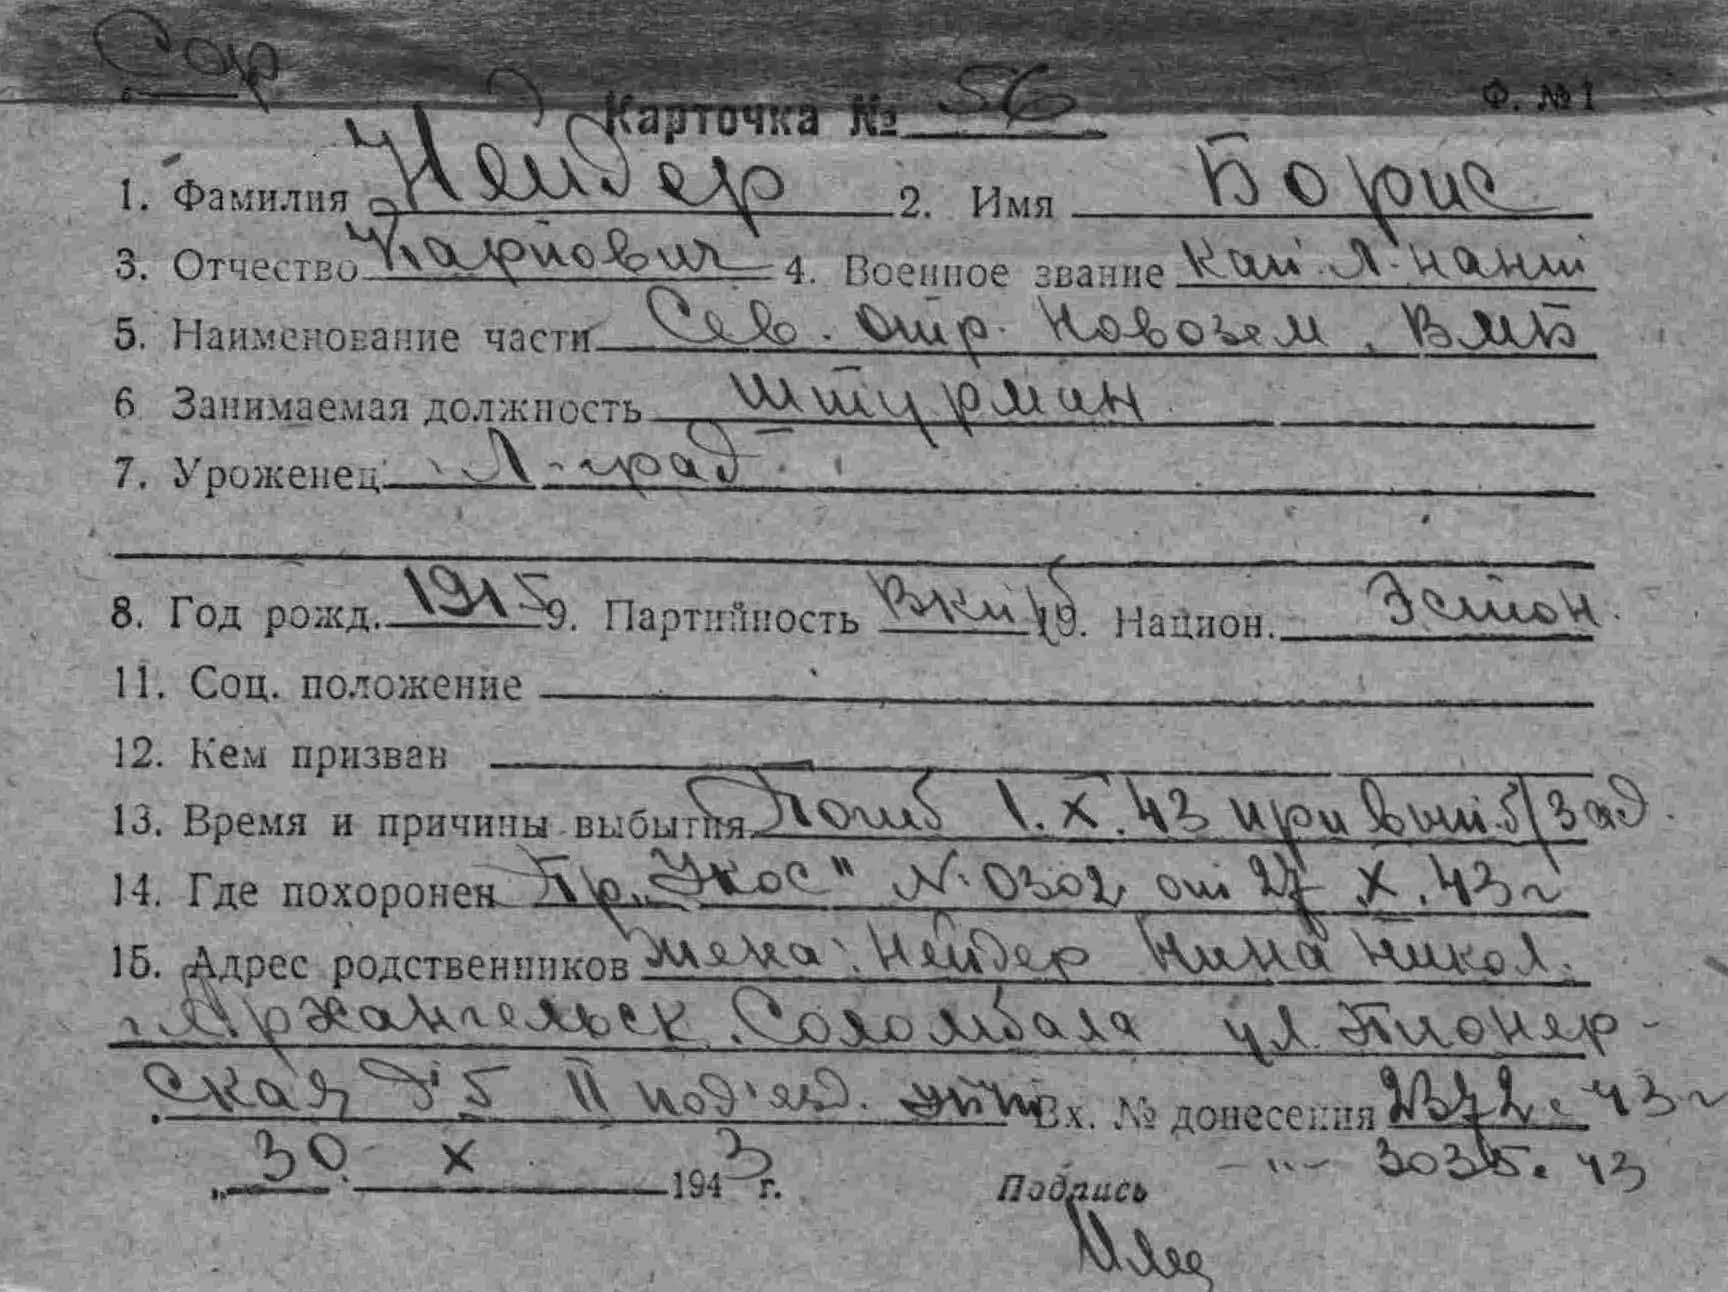 Сор
Ф. №1
Карточка № 56
1. Фамилия Нейдер 2. Имя Борис
3. Отчество Карпович 4. Военное звание кап. л-нант
5. Наименование части Сев. отр. Новозем. ВМБ
6 Занимаемая должность штурман
7. Уроженец Л-град
8. Год рожд. 1915 9. Партийность ВКП/б 19. Национ. Эстон.
11. Соц. положение
12. Кем призван
13. Время и причины выбытия Погиб 1.X.43 при вып. б/зад.
14. Где похоронен Пр. "Укос" N. 0302 от 27 X. 43 г
15. Адрес родственников жена: Нейдер Нина Никол.
г. Архангельск. Соломбала ул. Пионер-
ская д. 5 II под'езд. Вх. № донесения 2372. 43 г
„ 30. X 1943 г. -"- 3035. 43
Подпись